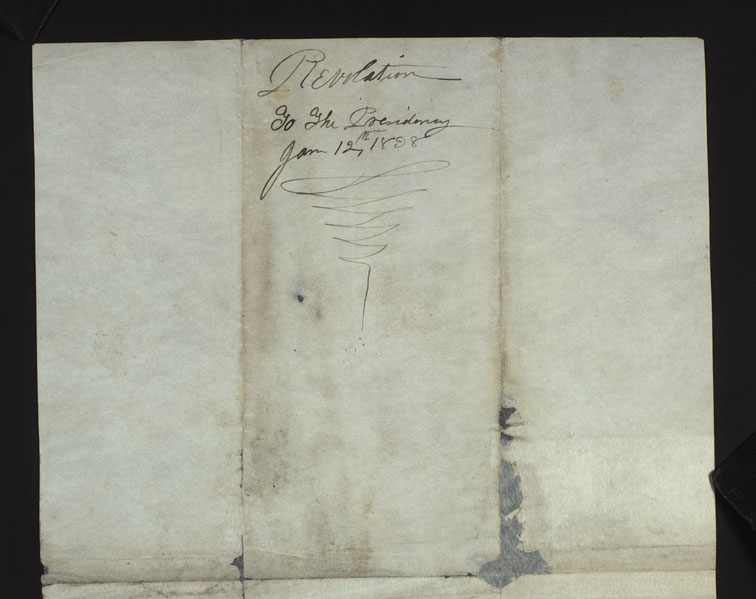 Revolation
To The Presidency
Jan 12th 1838